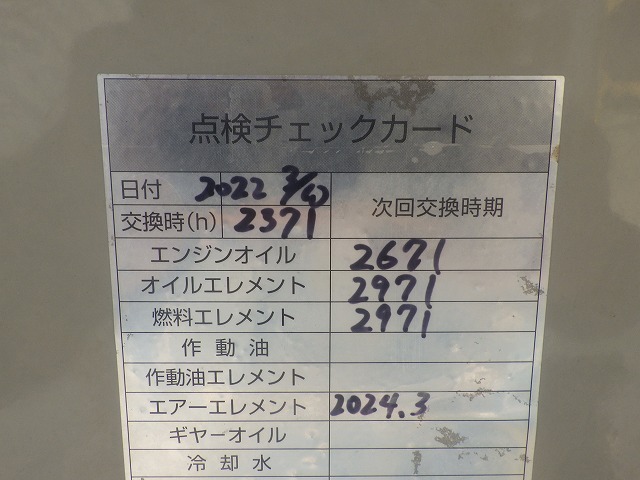 点検チェックカード
日付 2022 3/
交換時(h) 2371
次回交換時期
エンジンオイル 2671
オイルエレメント 2971
燃料エレメント 2971
作動油
作動油エレメント
エアーエレメント 2024.3
ギヤーオイル
冷却水